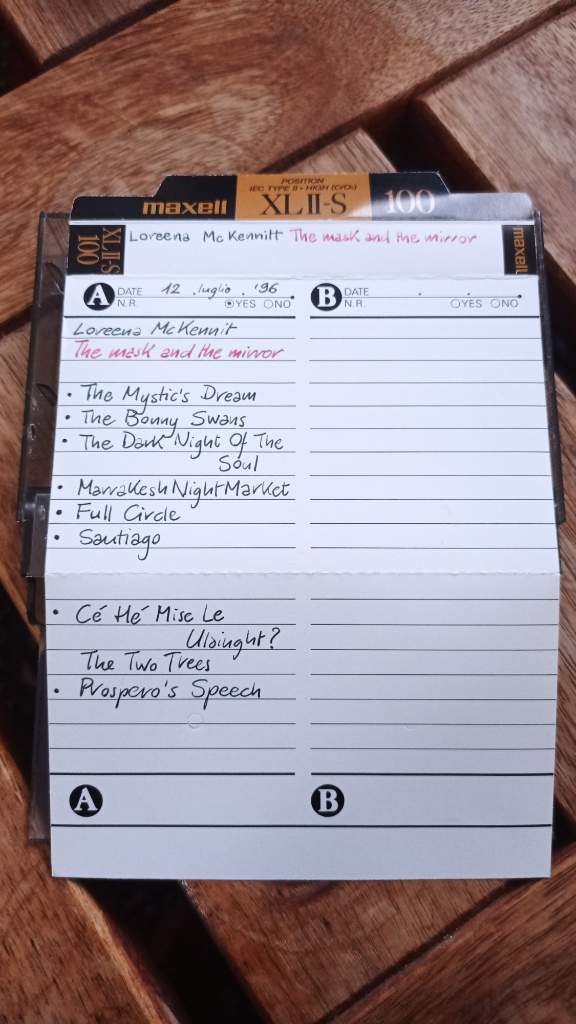 POSITION
IEC TYPE II • HIGH (CrO₂)
maxell XLII-S 100
XLII-S 100
Loreena McKennitt The mask and the mirror
maxell
A DATE 12 . luglio . '96
N.R. YES NO
B DATE . .
N.R. YES NO
Loreena McKennit
The mask and the mirror
• The Mystic's Dream
• The Bonny Swans
• The Dark Night Of The
Soul
• Marrakesh Night Market
• Full Circle
• Santiago
• Cé Hé Mise Le
Ulainght?
The Two Trees
• Prospero's Speech
A
B